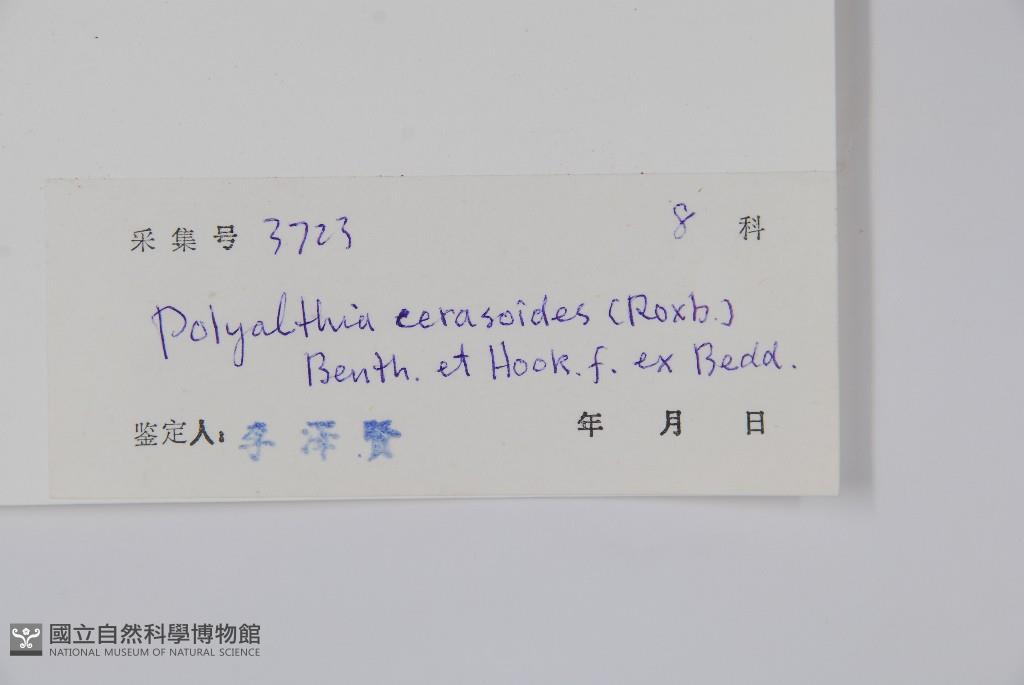 采集号 3723 8 科
Polyalthia cerasoides (Roxb.)
Benth. et Hook. f. ex Bedd.
鉴定人: 李泽賢 年 月 日
國立自然科學博物館
NATIONAL MUSEUM OF NATURAL SCIENCE